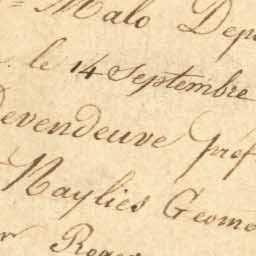 Malo Dep
le 14 Septembre
Devendeuve pref
Naylies Geome
Roger